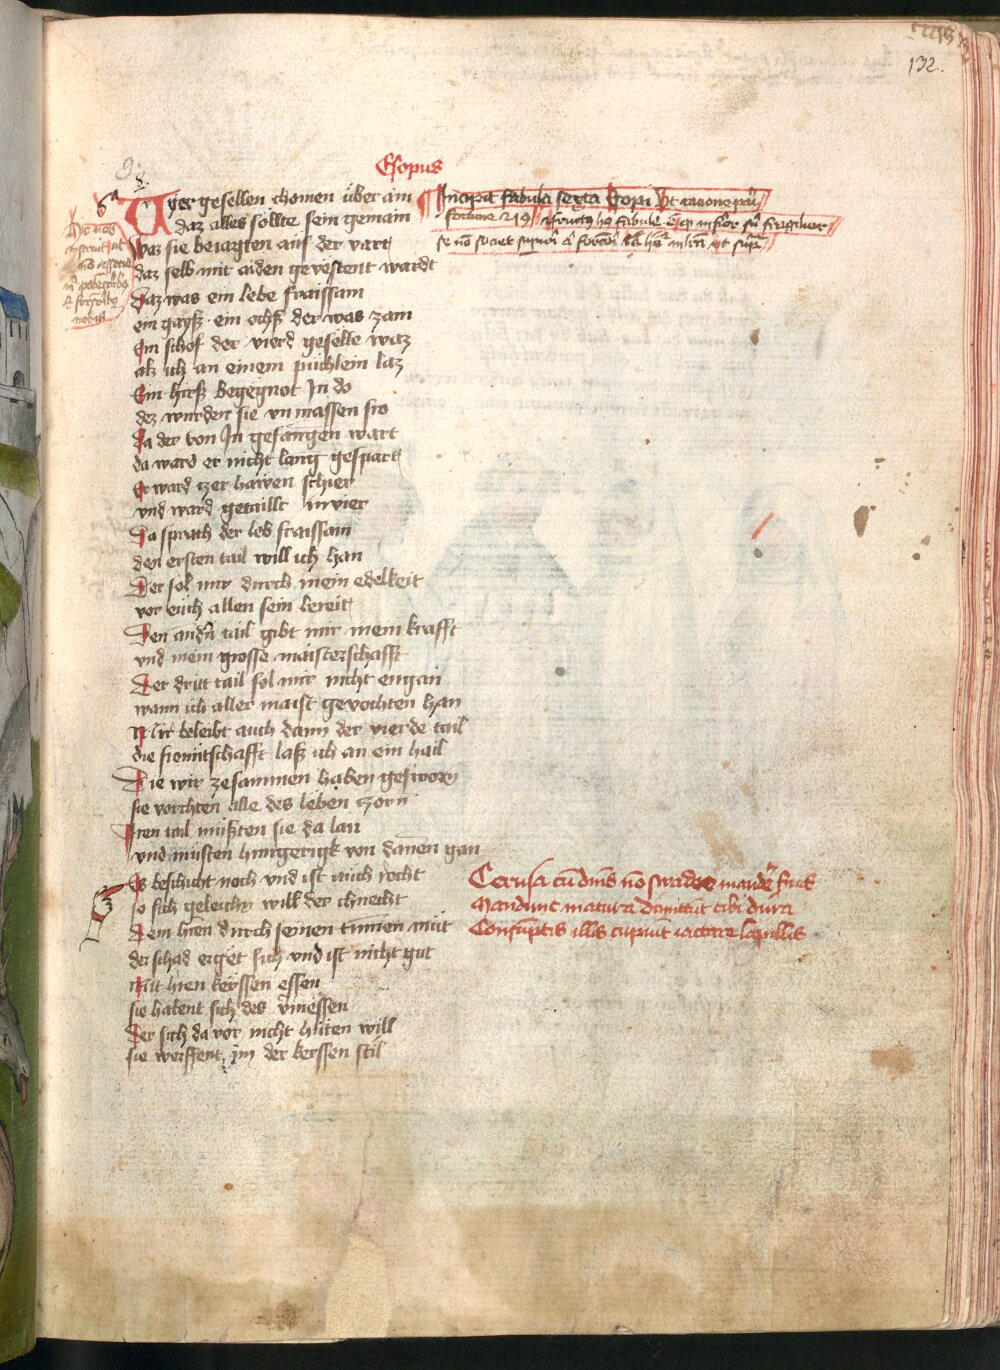 132.
Esopus
98.
6a
Vyer gesellen chomen über ain
daz alles sollte sein gemain
Waz sie beiagten auf der vart
daz selb mit aiden gevestent wardt
Daz was ein lebe fraissam
ein gayß ein ochß der was zam
Ein schof der vierd geselle waz
alz ich an einem püchlein laz
Ein hirß begegnot In do
dez wurden sie vnmassen fro
Da der von In gefangen wart
da ward er nicht lang gespart
Er ward zer hawen schier
vnd ward getaillt in vier
Da sprach der leb fraissam
den ersten tail will ich han
Der sol mir durch mein edelkeit
vor euch allen sein bereit
Den andn tail gibt mir mein krafft
vnd mein grosse maisterschafft
Der dritt tail sol mir nicht engan
wann ich aller maist gevochten han
Mir beleibt auch dann der vierde tail
die freuntschafft laß ich an ein hail
Die wir zesammen haben gesworn
sie vorchten alle des leben zorn
Iren tail müßten sie da lan
vnd musten hungerigk von dannen gan
Es beschicht noch vnd ist auch recht
so sich geleichn will der chnecht
Dem hren durch seinen tummen müt
der schad erget sich vnd ist nicht gut
Mit hren kerssen essen
sie habent sich des vmessen
Der sich da vor nicht hüten will
sie werffent im der kerssen stil
Incipit fabula sexta Esopi
fructus hs fabule
Cerusa cu dnis no swadeo mandere seruos
Mandunt matura dimittunt tibi dura
Consumptis illis cupiunt iactare lapillis